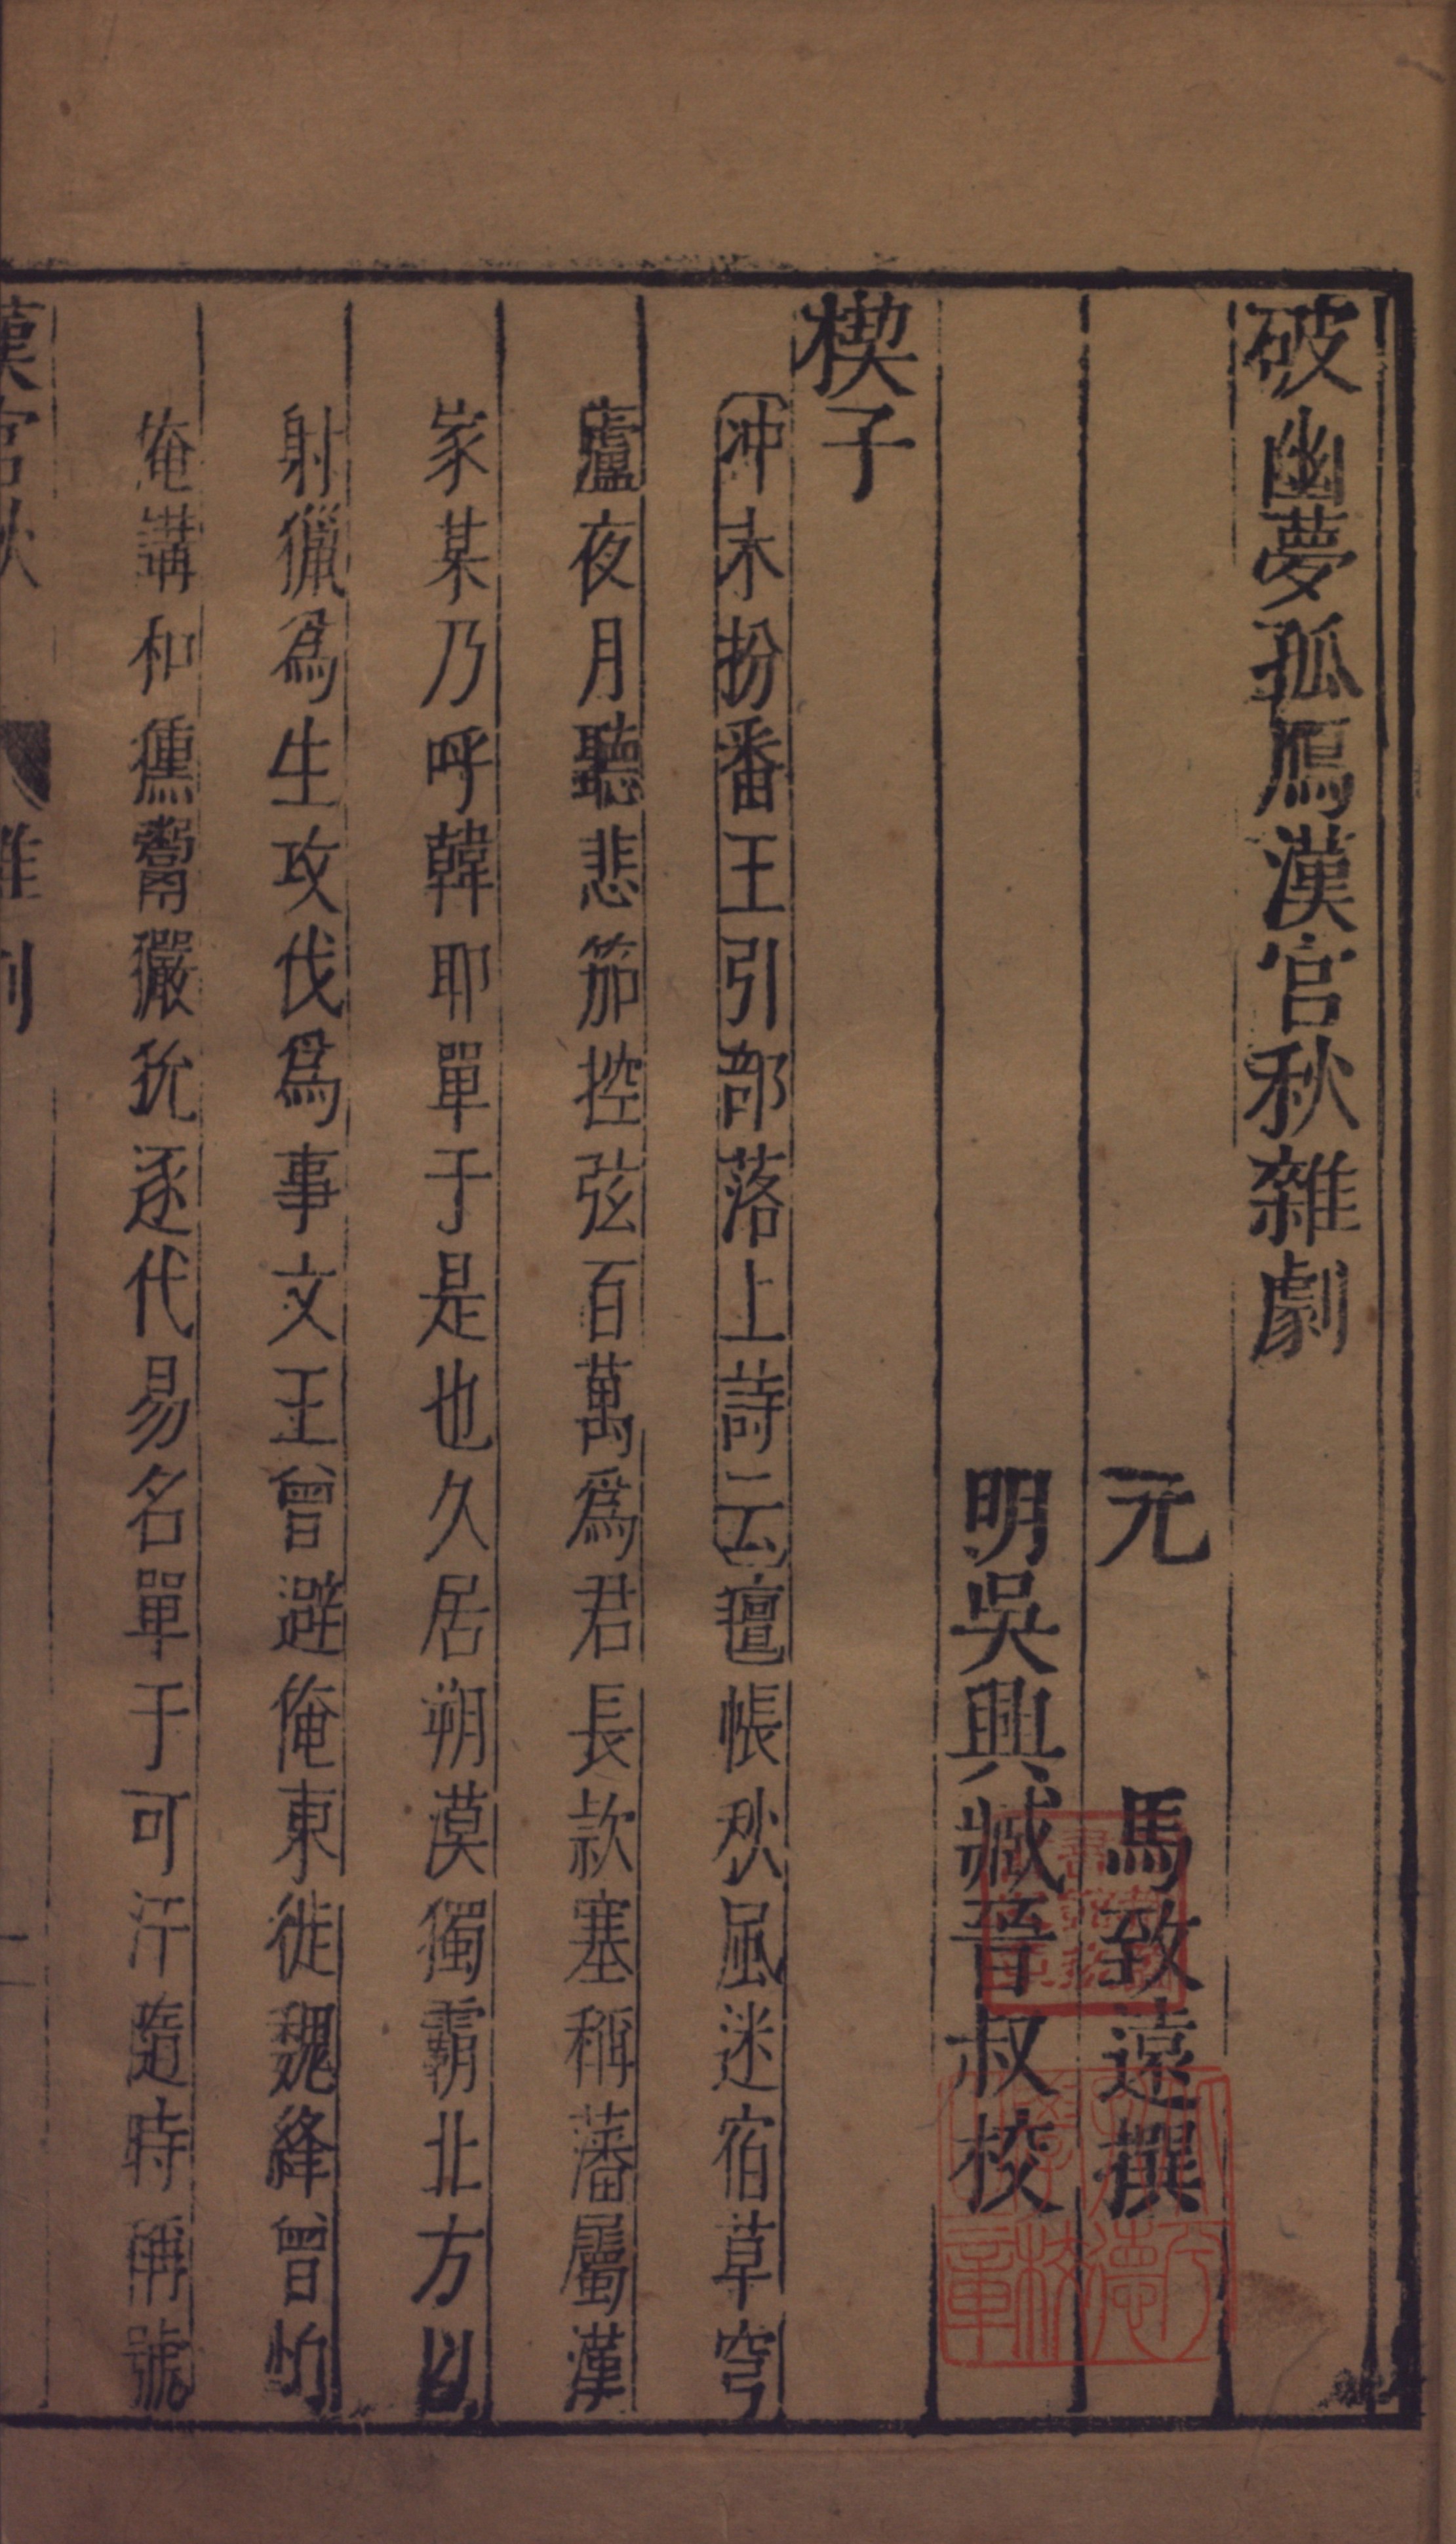 破幽夢孤鴈漢宮秋雜劇
元 馬致遠撰
明吳興臧晉叔校
楔子
冲末扮番王引部落上詩云氊帳秋風迷宿草穹
廬夜月聽悲笳控弦百萬爲君長款塞稱藩屬漢
家某乃呼韓耶單于是也久居朔漠獨霸北方以
射獵爲生攻伐爲事文王曾避俺東徙魏絳曾怕
俺講和獯鬻玁狁逐代易名單于可汗隨時稱號
漢宮秋 雜劇 一